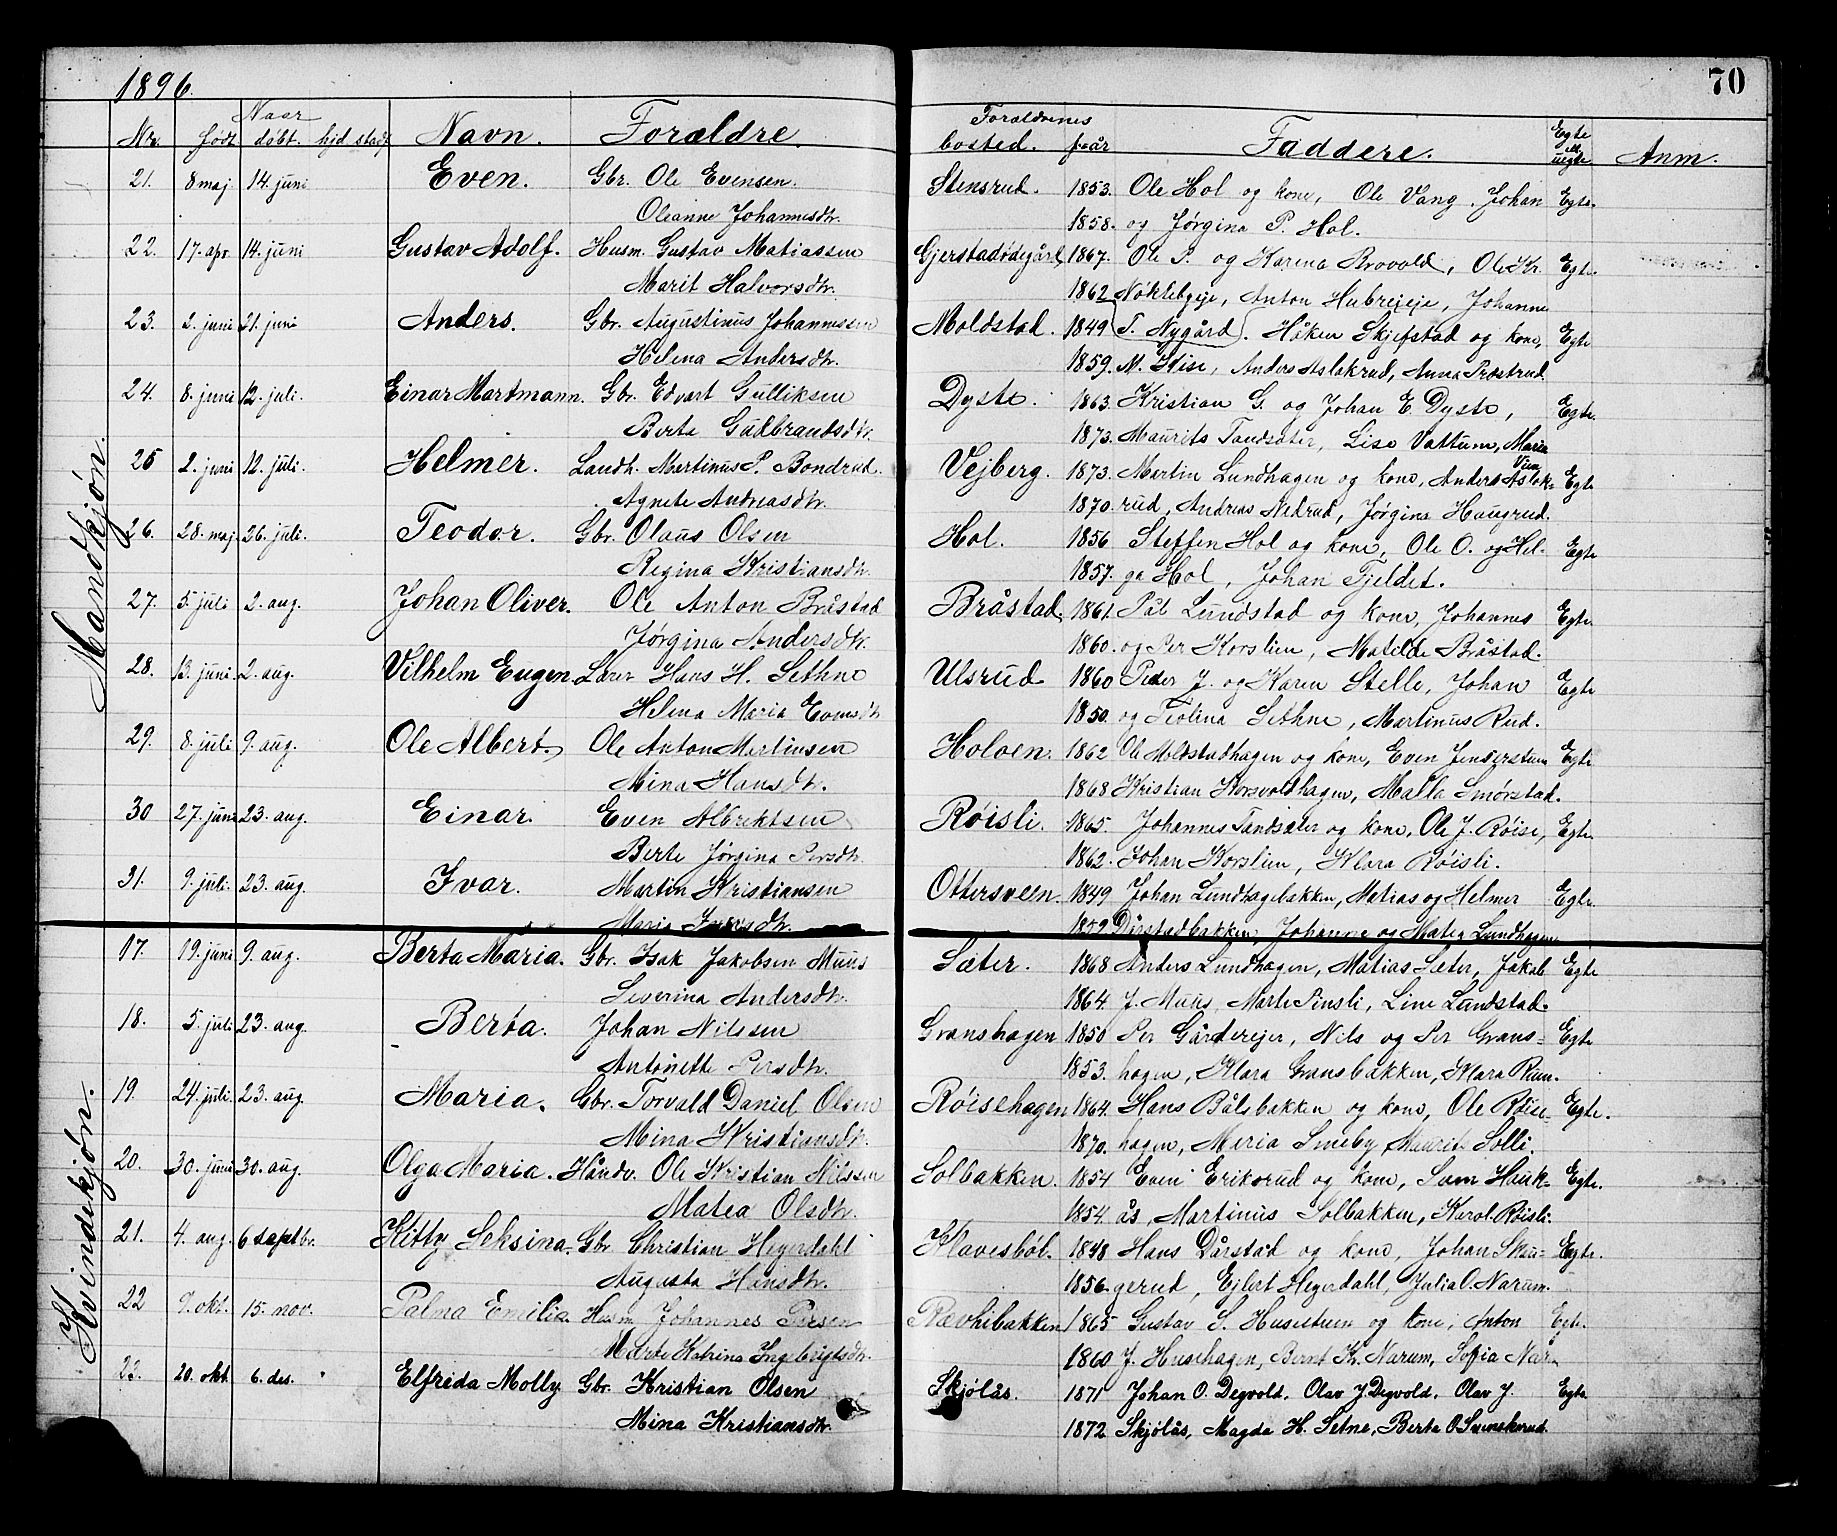 1896. 70
Naar Forældrenes Egte
Nr. født døbt. hjd stadf Navn. Forældre. bosted. f.aar Faddere. el. uegte Anm.
Mandkjøn.
21. 8 maj 14. juni Even. Gbr. Ole Evensen. Stensrud. 1853. Ole Hol og kone, Ole Vang. Johan Egte.
Oleanne Johannesdtr. 1858. og Jørgina P. Hol.
22. 17. apr. 14. juni Gustav Adolf. Husm. Gustav Matiassen Gjerstadødegård, 1867. Ole P. og Karina Brovold, Ole Kr. Egte.
Marit Halvorsdtr. 1862 Nøklebyeje, Anton Hubrejeje, Johanne
23. 2. juni 21. juni Anders. Gbr. Augustinus Johannessen Moldstad. 1849 T. Nygård. Håken Skjefstad og kone, Egte
Helena Andersdtr. 1859. M. Stise, Anders Aslakrud, Anna Præstrud.
24. 8. juni 12. juli. Einar Martmann. Gbr. Edvart Gulliksen Dyste. 1863. Kristian G. og Johan E. Dyste, Egte.
Berta Gudbrandsdtr. 1873. Maurits Tandsæter, Lise Vattum, Maria
25 2. juni 12. juli. Helmer. Landh. Martinus P. Bondrud. Vejberg. 1873. Martin Lundhagen og kone, Anders Aslak- Egte
Agnete Andreasdtr. 1870. rud, Andreas Nedrud, Jørgina Haugrud.
26. 28. maj. 26. juli. Teodor. Gbr. Olaus Olsen Hol. 1856 Steffen Hol og kone, Ole O. og Hel- Egte
Regina Kristiansdtr. 1857. ga Hol, Johan Fjeldet.
27. 5. juli 2. aug. Johan Oliver. Ole Anton Bråstad Bråstad, 1861. Pål Lundstad og kone, Johannes Egte.
Jørgina Andersdtr. 1860. og Per Korslien, Matilde Bråstad.
28. 13. juni. 2. aug. Vilhelm Eugen. Lærer Hans H. Sethne Ulsrud 1860 Peder J. og Karen Stelle, Johan Egte
Helena Maria Evensdtr 1850. og Teolina Sethne, Martinus Rud.
29. 8. juli 9. aug. Ole Albert. Ole Anton Martinsen Holoen. 1862 Ole Moldstadhagen og kone, Even Egte
Mina Hansdtr. 1868 Kristian Korsvoldhagen, Malla Smørstad.
30 27. juni 23. aug. Einar. Even Albrektsen Røisli. 1865. Johannes Tandsæter og kone, Ole J. Røise, Egte.
Berte Jørgina Persdtr. 1862. Johan Korslien, Klara Røisli.
31. 9. juli. 23. aug. Ivar. Martin Kristiansen Ottersveen. 1849 Johan Lundhagebakken, Matias og Helmer Egte.
Maria Iversdtr. 1852. Dårstadbakken, Johanne og Matea Lundhagen
Kvindekjøn.
17. 19. juni 9. aug. Berta Maria. Gbr. Isak Jakobsen Muus Sæter. 1868 Anders Lundhagen, Matias Sæter, Jakob Egte
Severina Andersdtr. 1864. J. Muus, Marte Pinsli, Line Lundstad.
18. 5. juli 23. aug. Berta. Johan Nilssen Granshagen 1850 Per Gårderejer, Nils og Per Grans- Egte
Antonette Persdtr. 1853. hagen, Klara Gransbakken, Klara Ruun.
19. 24. juli. 23. aug. Maria. Gbr. Torvald Daniel Olsen Røisehagen 1864. Hans Bålsbakken og kone, Ole Røise- Egte.
Mina Kristiansdtr. 1870. hagen, Maria Smeby, Maurits Solli.
20. 30. juni 30. aug. Olga Maria. Håndv. Ole Kristian Nilssen Solbakken. 1854 Even Eriksrud og kone, Sam Hauk- Egte.
Matea Olsdtr. 1854. ås, Martinus Solbakken, Karol. Røisli.
21. 4. aug. 6 septbr. Kitty Seksina. Gbr Christian Heyerdahl Klavesböl. 1848 Hans Dårstad og kone, Johan Sku- Egte.
Augusta Hansdtr. 1856. gerud, Ejlert Heyerdahl, Julia O. Narum.
22 9. okt. 15. nov. Palma Emilia. Husm. Johannes Persen Rævhibakken 1865 Gustav S. Husestuen og kone, Anton Egte.
Marte Katrina Ingebrigtsdtr. 1860 J. Husehagen, Bernt K. Narum, Sofia Nar
23. 20. okt 6. des. Elfrida Molly Gbr. Kristian Olsen Skjølås. 1871 Johan O. Degvold, Olav J. Degvold, Olav J. Egte
Mina Kristiansdtr. 1872 Skjølås, Magda H. Setne, Berta O.